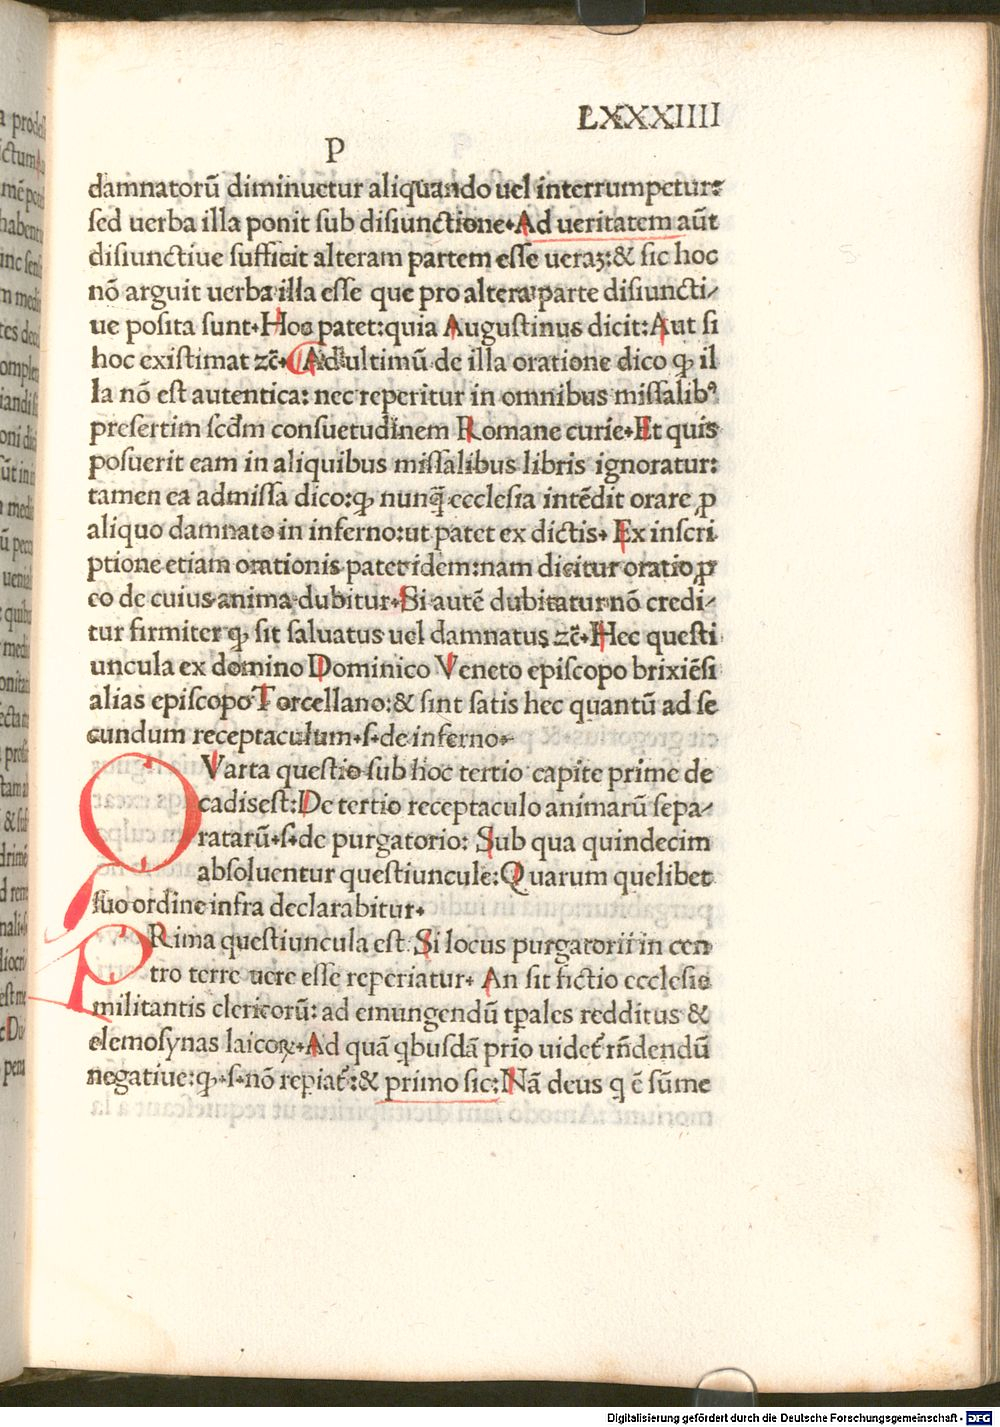 LXXXIIII
P
damnatorū diminuetur aliquando uel interrumpetur:
sed uerba illa ponit sub disiunctione. Ad ueritatem aūt
disiunctiue sufficit alteram partem esse ueraꝫ: & sic hoc
nō arguit uerba illa esse que pro altera parte disiuncti/
ue posita sunt. Hoc patet: quia Augustinus dicit: Aut si
hoc existimat ⁊c̄. Ad ultimū de illa oratione dico ꝙ il
la nō est autentica: nec reperitur in omnibus missalibꝰ
presertim scd̄m consuetudinem Romane curie. Et quis
posuerit eam in aliquibus missalibus libris ignoratur:
tamen ea admissa dico: ꝙ nunq̄ ecclesia intēdit orare ꝓ
aliquo damnato in inferno: ut patet ex dictis. Ex inscri
ptione etiam orationis patet idem: nam dicitur oratio ꝓ
eo de cuius anima dubitur. Si autē dubitatur nō credi/
tur firmiter ꝙ sit saluatus uel damnatus ⁊c̄. Hec questi
uncula ex domino Dominico Veneto episcopo brixiēsi
alias episcopo Torcellano: & sint satis hec quantū ad se
cundum receptaculum .s. de inferno.
QVarta questio sub hoc tertio capite prime de
cadis est: De tertio receptaculo animarū sepa/
ratarū .s. de purgatorio: Sub qua quindecim
absoluentur questiuncule: Quarum quelibet
suo ordine infra declarabitur.
PRima questiuncula est. Si locus purgatorii in cen
tro terre uere esse reperiatur. An sit fictio ecclesie
militantis clericorū: ad emungendū tꝑales redditus &
elemosynas laicoꝝ. Ad quā qbusdā prīo uidet᷑ rn̄dendū
negatiue: ꝙ .s. nō repiat᷑: & primo sic: Nā deus q ē sūme
Digitalisierung gefördert durch die Deutsche Forschungsgemeinschaft - DFG